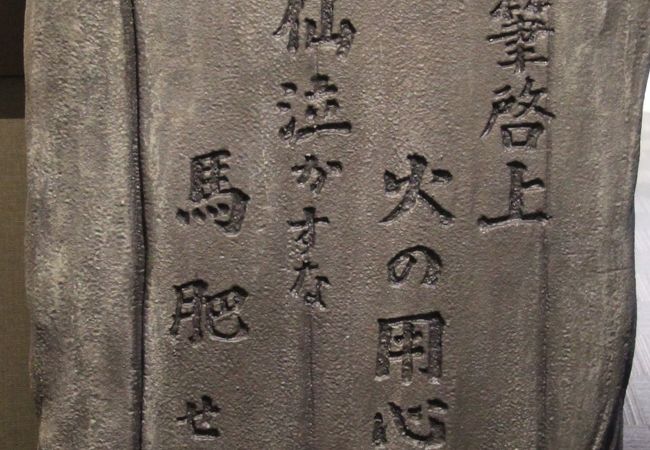 筆啓上
火の用心
仙泣かすな
馬肥せ